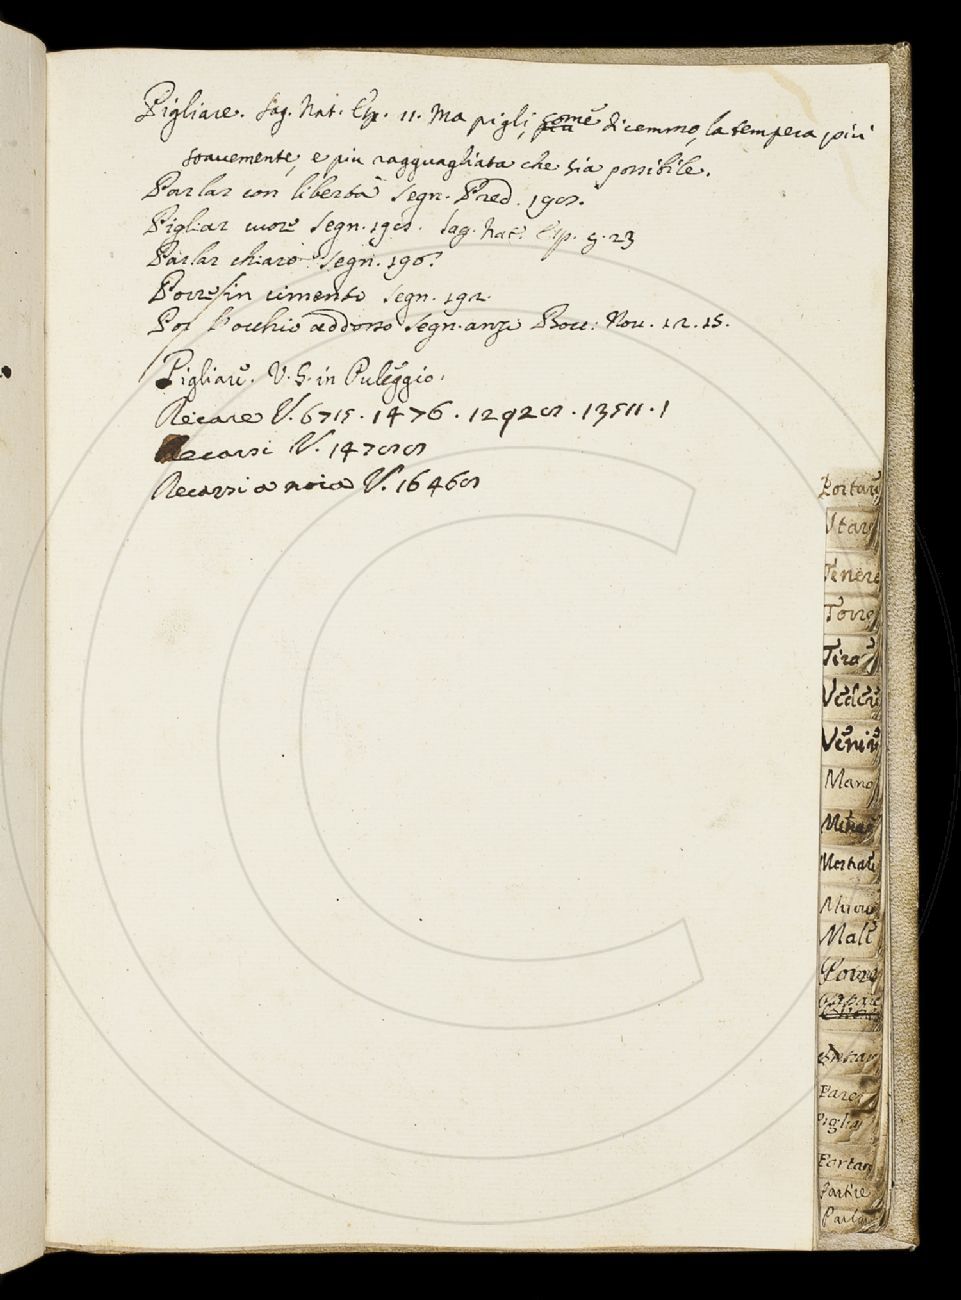 Pigliare. Sag. Nat. Esp. 11. Ma pigli, come dicemmo, la tempera più
soavemente, e più ragguagliata che sia possibile.
Parlar con libertà Segn. Pred.
Pigliar cuore Segn. Sag. Nat. Esp. 23
Parlar chiaro Segn.
Porre in cimento Segn. 192
Por l'occhio addosso Segn. anzi Bocc. Nov. 12. 15.
Pigliare. V. S. in Puleggio.
Recare V. 6715. 1476. 13511. 1
Recarsi V.
Recarsi a noia V.
Portare
Stare
Tenere
Torre
Tirar
Vedere
Venire
Mano
Mettere
Mostrare
Muover
Male
Porre
Entrar
Parer
Pigliar
Portar
Partire
Parlar